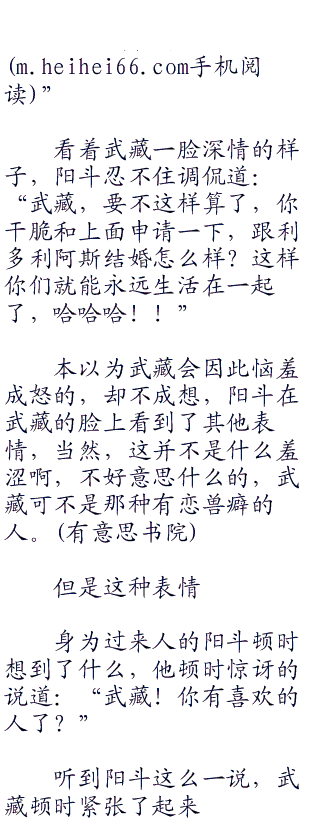 (m.heihei66.com手机阅
读)”
看着武藏一脸深情的样
子，阳斗忍不住调侃道：
“武藏，要不这样算了，你
干脆和上面申请一下，跟利
多利阿斯结婚怎么样？这样
你们就能永远生活在一起
了，哈哈哈！！”
本以为武藏会因此恼羞
成怒的，却不成想，阳斗在
武藏的脸上看到了其他表
情，当然，这并不是什么羞
涩啊，不好意思什么的，武
藏可不是那种有恋兽癖的
人。(有意思书院)
但是这种表情
身为过来人的阳斗顿时
想到了什么，他顿时惊讶的
说道：“武藏！你有喜欢的
人了？”
听到阳斗这么一说，武
藏顿时紧张了起来